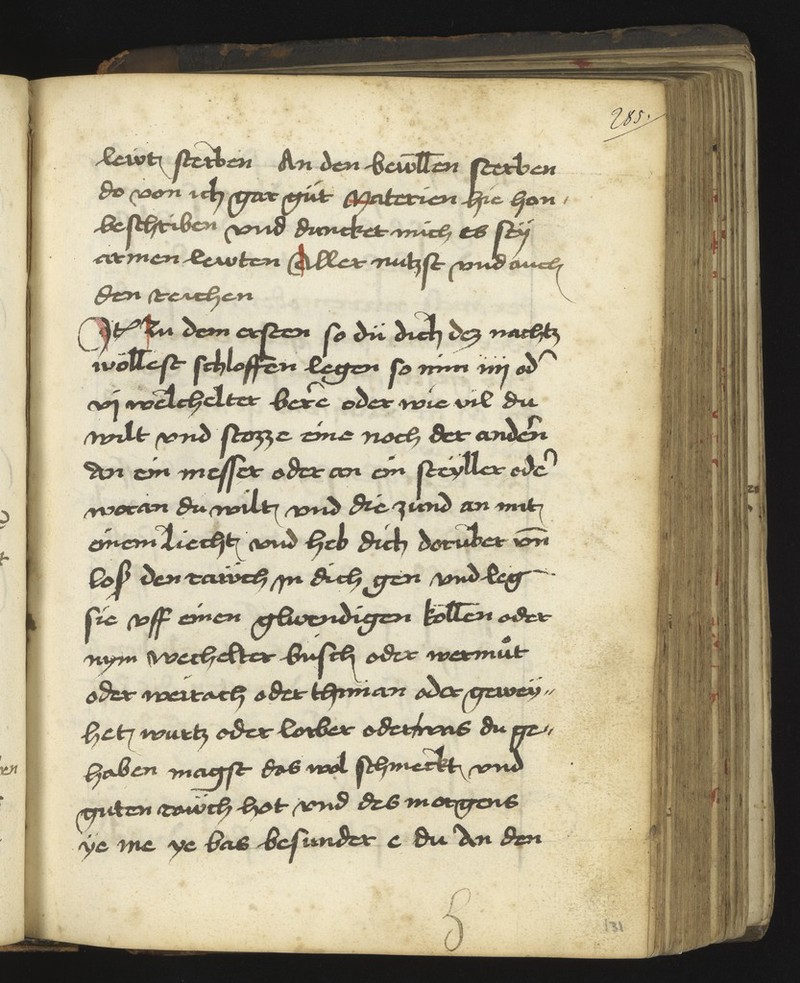 285.
lewtz sterben An den bewllen sterben
do von ich gar gůt Materien hie hon
beschriben vnd duncket mich es sey
armen lewten Aller nutzst vnd auch
den reichen
Itē Zu dem ersten so dü dich dez nachtz
wöllest schloffen legen so nim iiij od̕
vj welchelter bere oder wie vil du
wilt vnd stozze eine noch der andern
an ein messer oder an ein steyller oder
woran du wilt vnd die zund an mit
einem liecht vnd heb dich dorüber vn̄
loß den rawch in dich gen vnd leg
sie vff einen glwendigen kollen oder
nym wechelter busch oder wermůt
oder weirach oder thimian oder gewey-
hetz wurtz oder lorber oder was du ge-
haben magst das wol schmeckt vnd
guten rawch hot vnd des morgens
ye me ye bas besunder e du An den
131